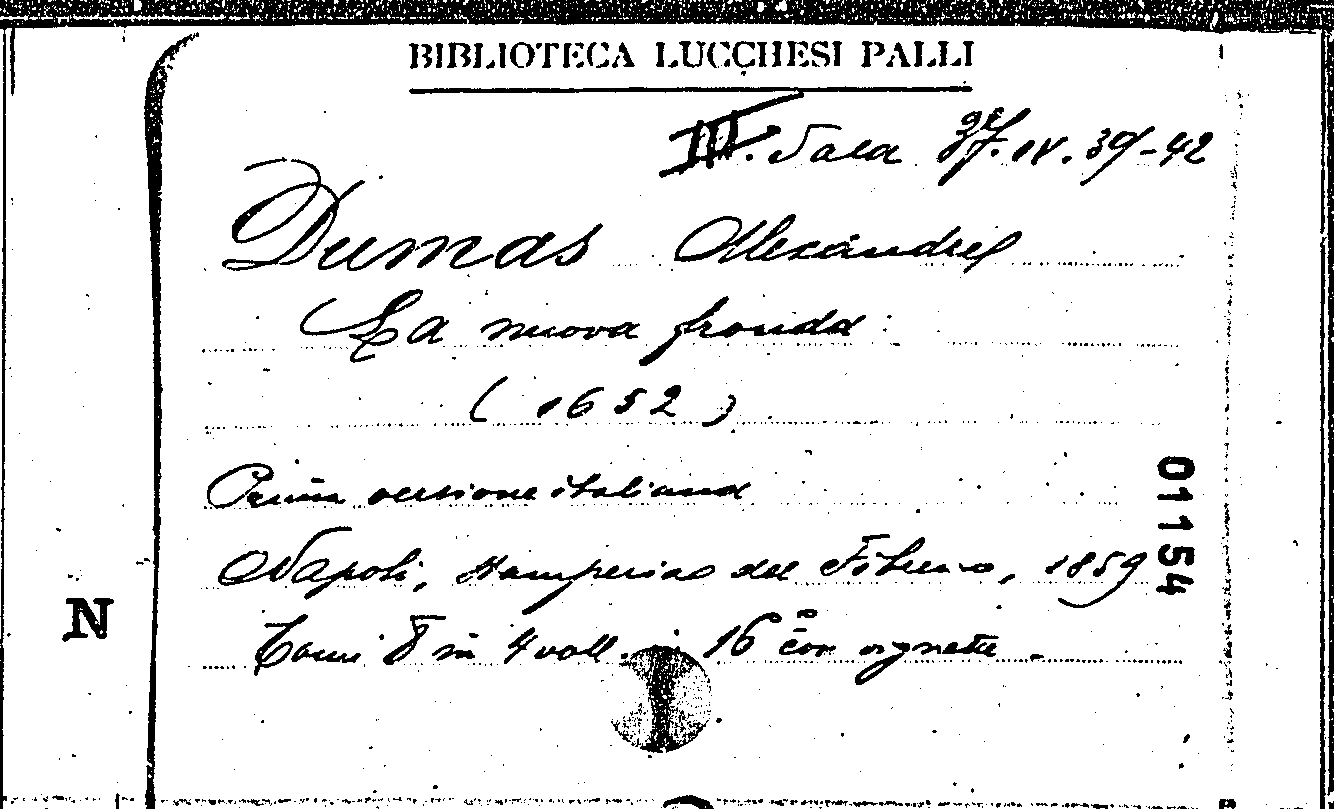 BIBLIOTECA LUCCHESI PALLI
III. Sala 37. IV. 39-42
Dumas Alexandre
La nuova fronda
( 1652 )
Prima versione italiana
Napoli, Stamperia del Fibreno, 1859
Tomi 8 in 4 voll. in 16º con vignette.
01154
N